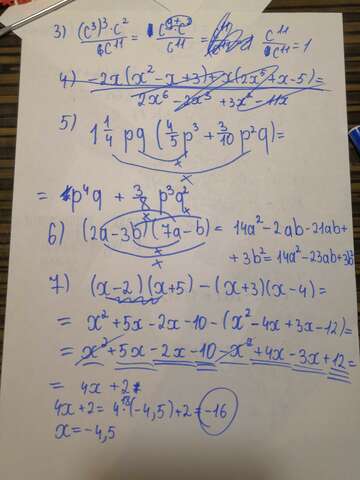 3) (c³)³·c² / c¹¹ = c⁹⁺² / c¹¹ = c¹¹ / c¹¹ = 1
4) -2x(x²-x+3)+x(2x³+x-5)=
2x⁶-2x³+3x²-11x
5) 1 1/4 pq (4/5 p³ + 3/10 p²q)=
= p⁴q + 3/8 p³q²
6) (2a-3b)(7a-b)= 14a²-2ab-21ab+
+3b²=14a²-23ab+3b²
7) (x-2)(x+5)-(x+3)(x-4)=
= x²+5x-2x-10-(x²-4x+3x-12)=
= x²+5x-2x-10-x²+4x-3x+12=
= 4x+2
4x+2=4·(-4,5)+2=-16
x=-4,5